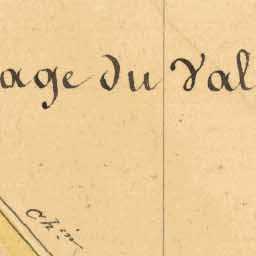 age du Val
Chin